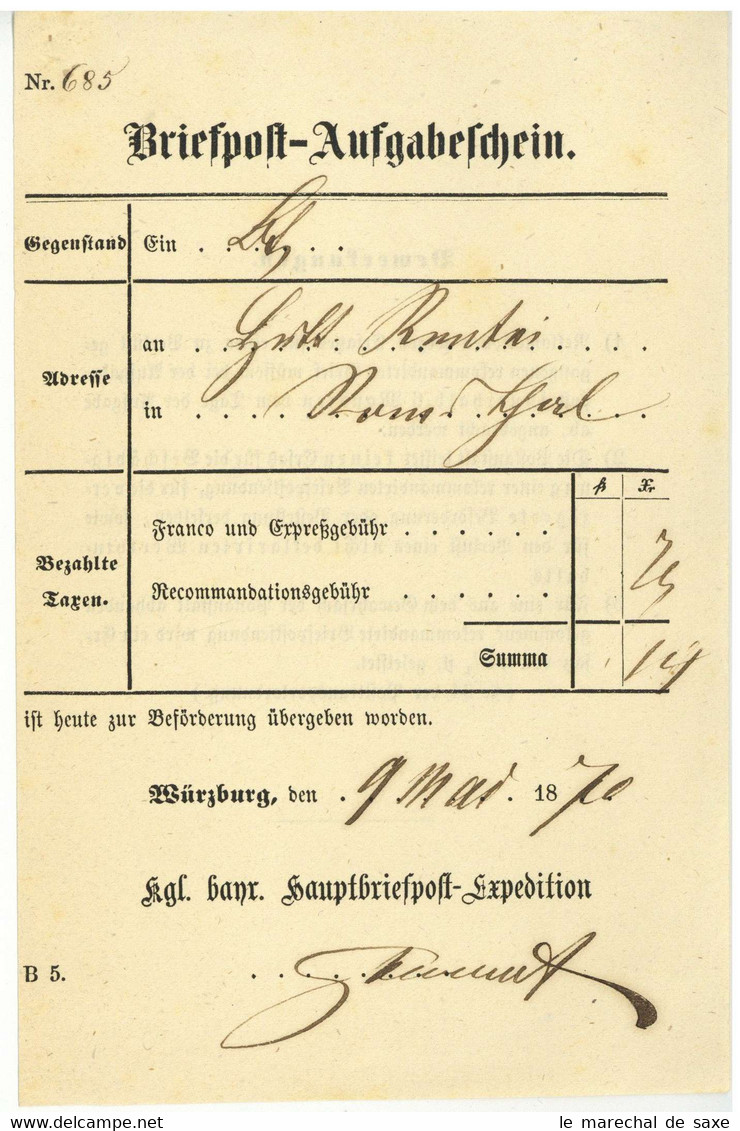 Nr. 685
Briefpost-Aufgabeschein.
Gegenstand Ein
Adresse
an Gutt. Rentei
in
fl Xr
Bezahlte Taxen.
Franco und Expreßgebühr
Recommandationsgebühr
Summa
ist heute zur Beförderung übergeben worden.
Würzburg, den 9 Mai. 1870
Kgl. bayr. Hauptbriefpost-Expedition
B 5.
le marechal de saxe